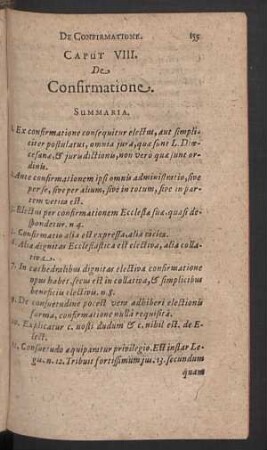 DE CONFIRMATIONE. 155
CAPUT VIII.
De
Confirmatione.
SUMMARIA.
1. Ex confirmatione consequitur electus, aut simpli-
citer postulatus, omnia jura, quæ sunt L. Diœ-
cesanæ, & jurisdictionis, non verò quæ sunt or-
dinis.
Ante confirmationem ipsi omnis administratio, sive
per se, sive per alium, sive in totum, sive in par-
tem vetita est.
Electus per confirmationem Ecclesiæ suæ quasi de-
spondetur. n. 4.
Confirmatio alia est expressa, alia tacita.
Alia dignitas Ecclesiastica est electiva, alia colla-
tiva.
7. In cathedralibus dignitas electiva confirmatione
opus habet. secus est in collativa, & simplicibus
beneficiis electivis. n. 8.
9. De consuetudine potest verò adhiberi electionis
forma, confirmatione nulla requisita.
10. Explicatur c. nosti dudum & c. nihil est. de E-
lect.
11. Consuetudo æquiparatur privilegio. Est instar Le-
gis. n. 12. Tribuit fortissimum jus. 13. secundum
quam